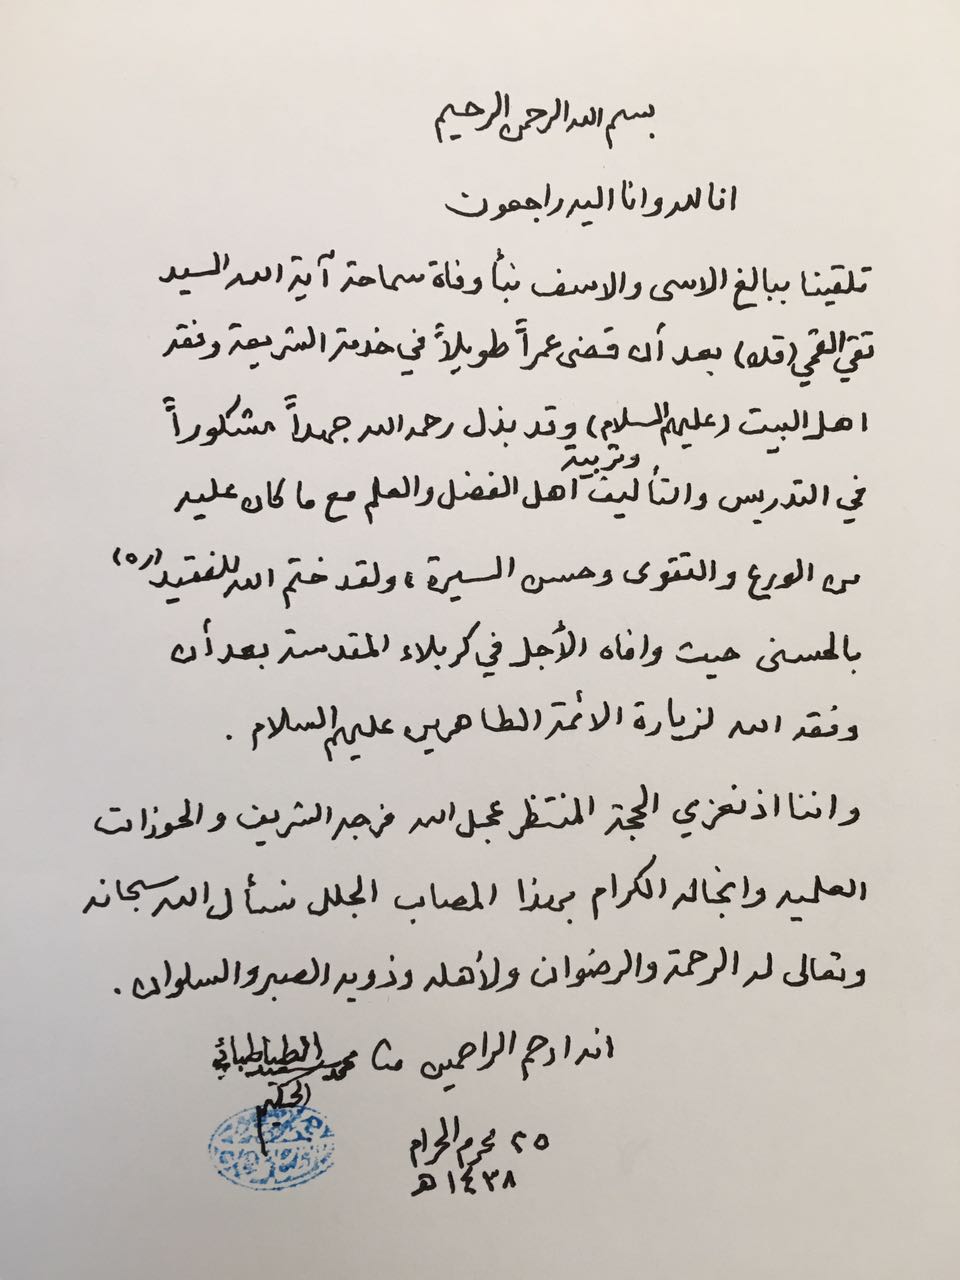 بسم الله الرحمن الرحيم
انا لله وانا اليه راجعون
تلقينا ببالغ الاسى والاسف نبأ وفاة سماحة آية الله السيد
تقي القمي (قده) بعد أن قضى عمراً طويلاً في خدمة الشريعة وفقه
اهل البيت (عليهم السلام) وقد بذل رحمه الله جهداً مشكوراً
في التدريس والتأليف وتربية أهل الفضل والعلم مع ما كان عليه
من الورع والتقوى وحسن السيرة، ولقد ختم الله للفقيد (ره)
بالحسنى حيث وافاه الأجل في كربلاء المقدسة بعد أن
وفقه الله لزيارة الائمة الطاهرين عليهم السلام .
واننا اذ نعزي الحجة المنتظر عجل الله فرجه الشريف والحوزات
العلمية وانجاله الكرام بهذا المصاب الجلل نسأل الله سبحانه
وتعالى له الرحمة والرضوان ولأهله وذويه الصبر والسلوان .
انه ارحم الراحمين محمد سعيد الطباطبائي
الحكيم
٢٥ محرم الحرام
١٤٣٨ هـ